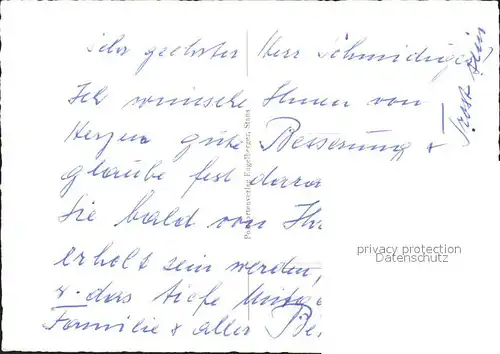 Sehr geehrter Herr Schmidiger,
Ich wünsche Ihnen von
Herzen gute Besserung &
glaube fest dara
Sie bald von Ih
erholt sein werden,
& das tiefe
Familie & aller Be
Trost sein
Postkartenverlag Engelberger, Stans
privacy protection
Datenschutz